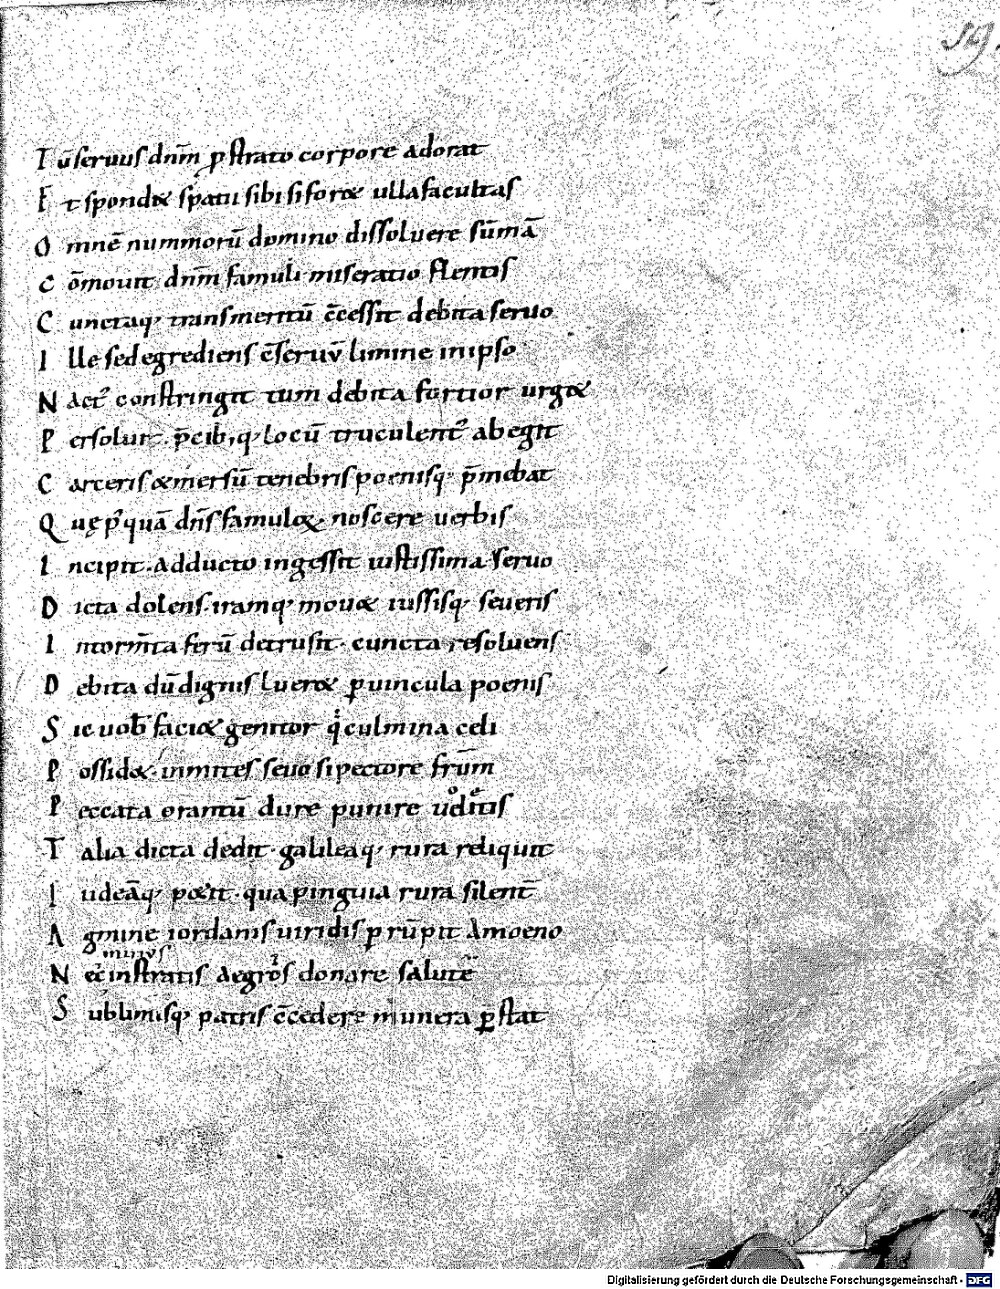 59.
T ū seruus dnm̄ ꝓstrato corpore adorat
E t spond& spatii sibi si for& ulla facultas
O mnē nummorū domino dissoluere sūmā
C ōmouit dnm̄ famuli miseratio flentis
C unctaq; transmeritū c̄cessit debita seruo
I lle sed egrediens c̄seruū limine in ipso
N act᾿ constringit tum debita fortior urg&
P ersoluit. p̄cib;q; locū truculent᾿ abegit
C arceris & mersū tenebris poenisq; p̄mebat
Q uę p᾿quā dn̄s famulo noscere uerbis
I ncipit. adducto ingessit iustissima seruo
D icta dolens. iramq; mou& iussisq; seueris
I n torm̄ta ferū detrusit. cuncta resoluens
D ebita dū dignis luer& ꝑ uincula poenis
S ic uob̄ faci& genitor qⁱ culmina celi
P ossid&. inmites seuo si pectore frūm
P eccata orantū dure punire uoditis
T alia dicta dedit. galileaq; rura reliquit
I udeāq; p&iit. qua pinguia rura silent̄
A gmine iordanis uiridis ꝓrūpit amoeno
minus
N ec instratis aegros donare salutē
S ublimisq; patris c̄cedere munera p̄stat
Digitalisierung gefördert durch die Deutsche Forschungsgemeinschaft - DFG